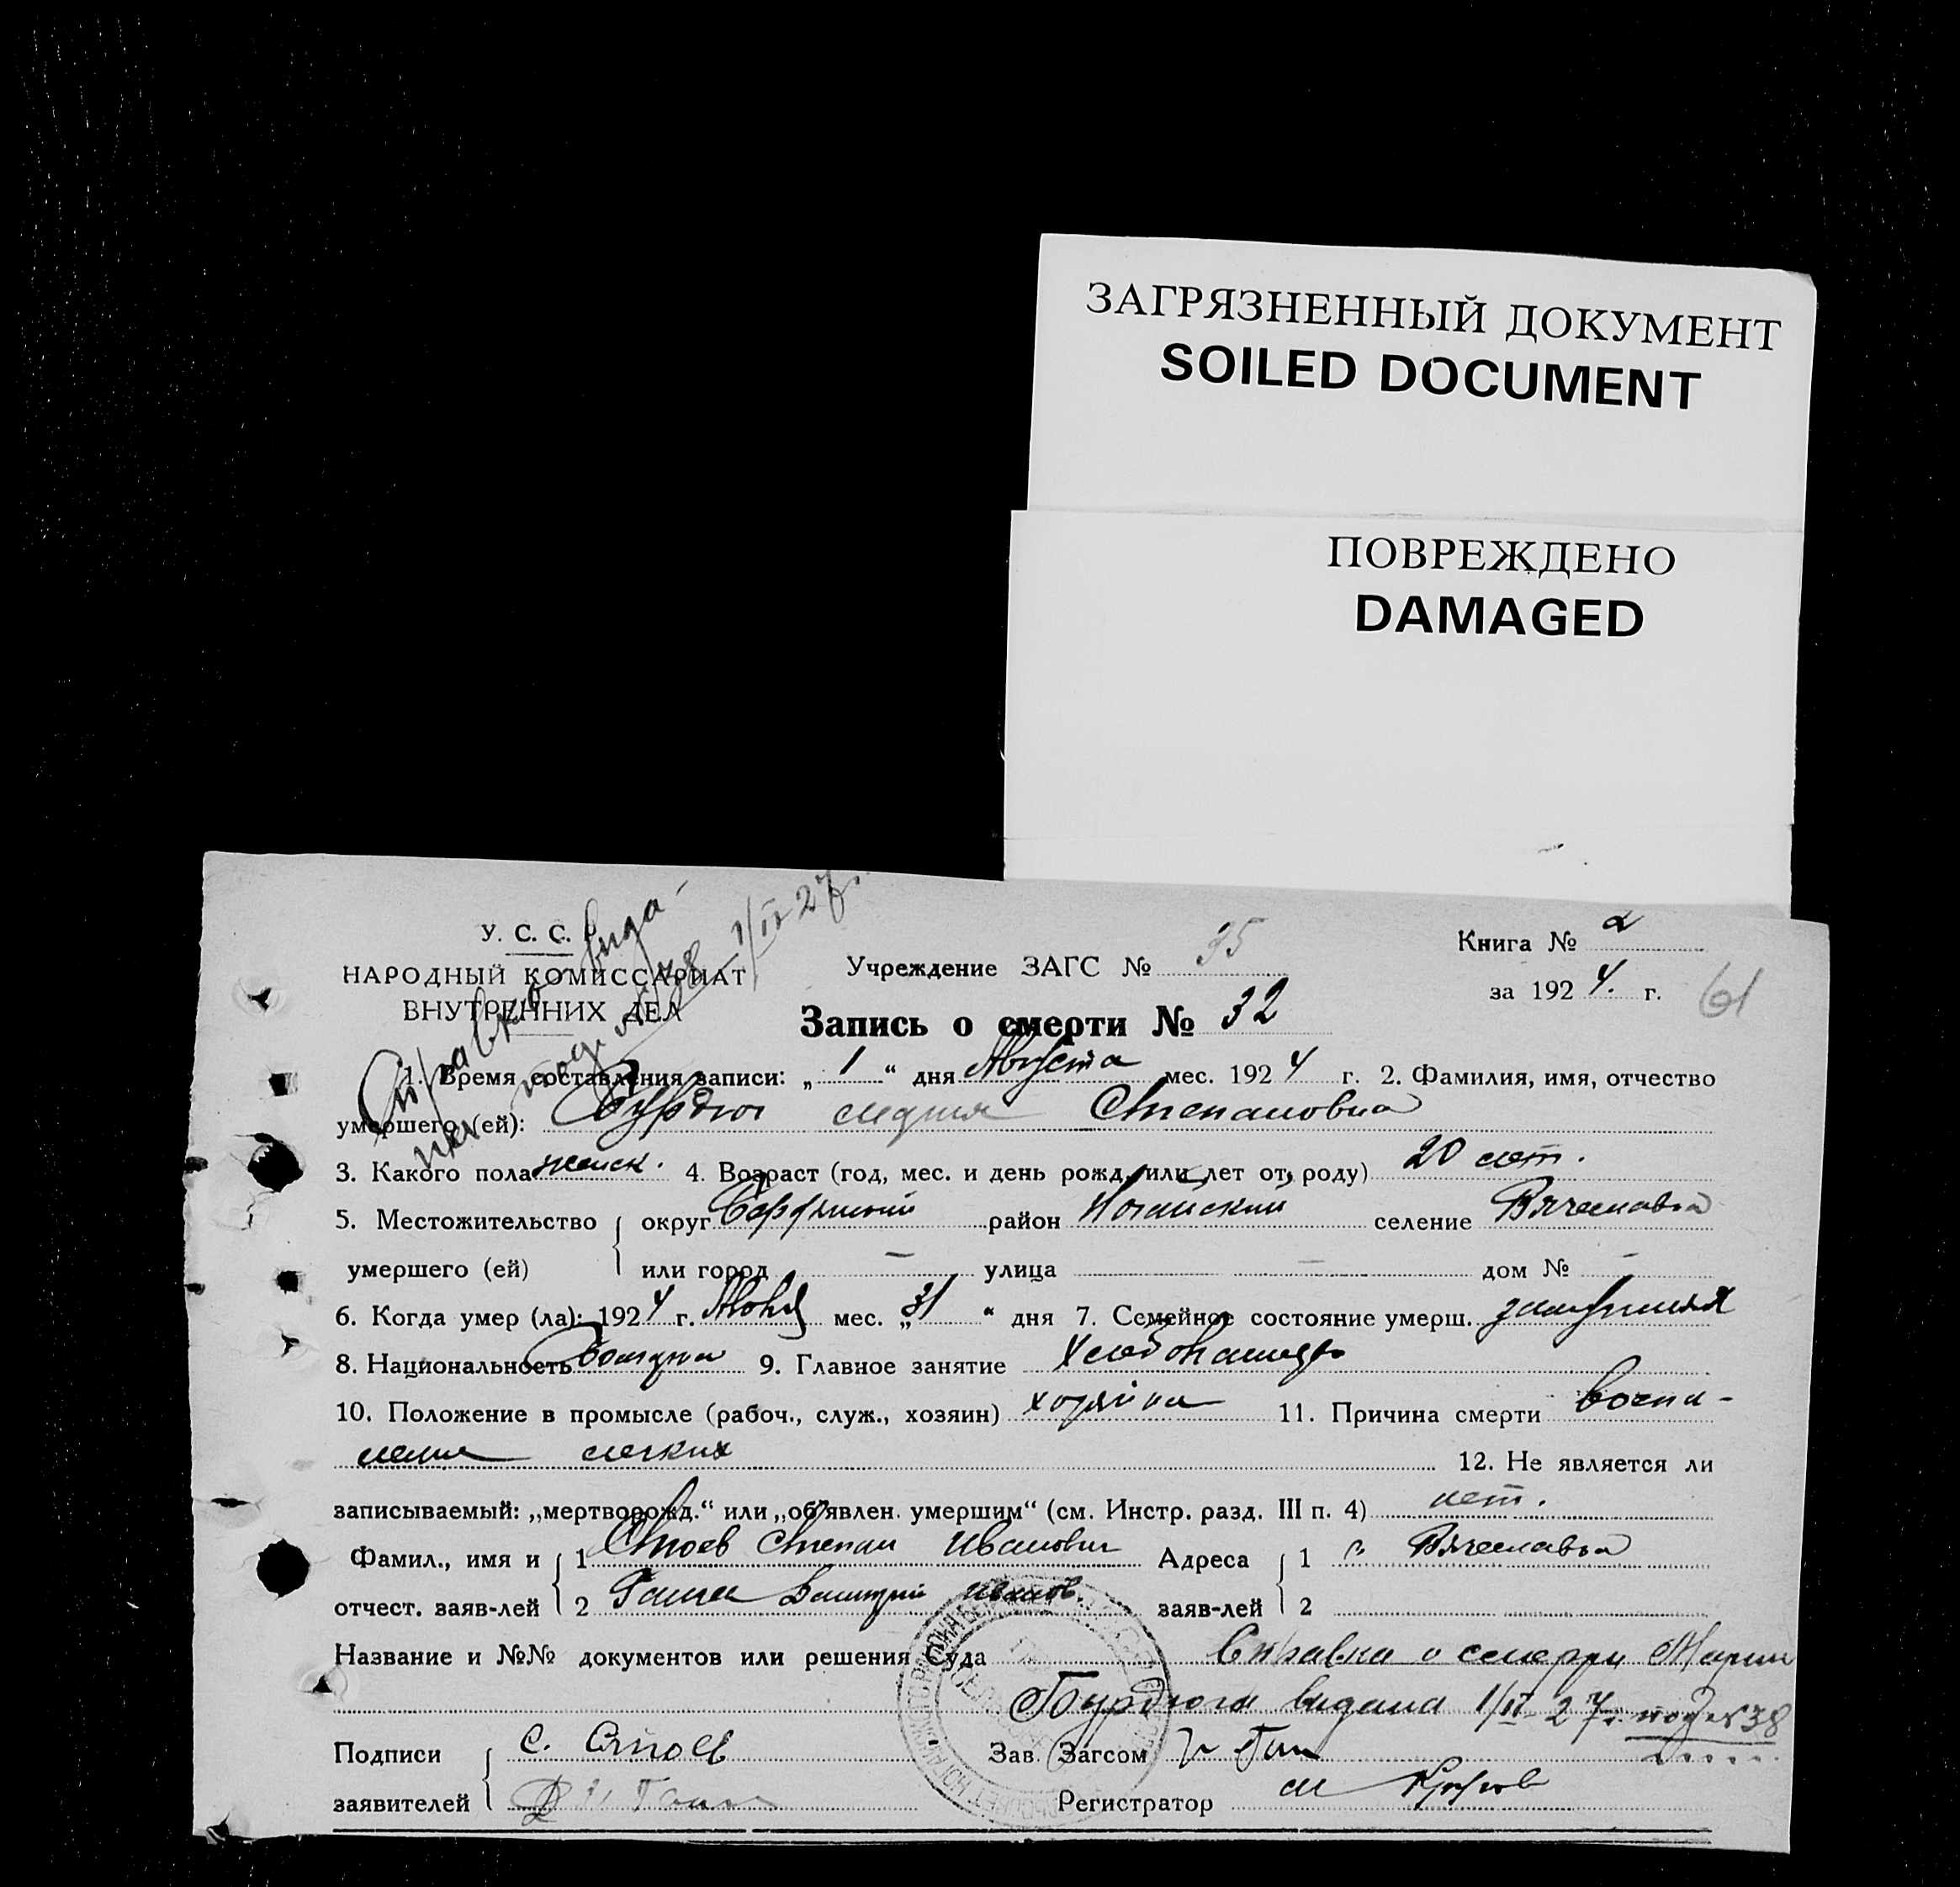 ЗАГРЯЗНЕННЫЙ ДОКУМЕНТ
SOILED DOCUMENT
ПОВРЕЖДЕНО
DAMAGED
У. С. С. Р.
НАРОДНЫЙ КОМИССАРИАТ
ВНУТРЕННИХ ДЕЛ
Справка выда-
на под № 38 1/IV 27 г.
Учреждение ЗАГС № 35
Книга № 2
за 1924. г.
61
Запись о смерти № 32
1. Время составления записи: „1“ дня Августа мес. 1924 г. 2. Фамилия, имя, отчество
умершего (ей): Бурдюг Мария Степановна
3. Какого пола женск. 4. Возраст (год, мес. и день рожд. или лет от роду) 20 лет.
5. Местожительство округ район Ногайский селение Вячеславка
умершего (ей) или город — улица — дом № —
6. Когда умер (ла): 1924 г. Июля мес. „31“ дня 7. Семейное состояние умерш. замужняя
8. Национальность Болгарка 9. Главное занятие Хлебопашество
10. Положение в промысле (рабоч., служ., хозяин) хозяйка 11. Причина смерти воспа-
ление легких 12. Не является ли
записываемый: „мертворожд.“ или „об’явлен. умершим“ (см. Инстр. разд. III п. 4) нет.
Фамил., имя и 1 Стоев Степан Иванович Адреса 1 с. Вячеславка
отчест. заяв-лей 2 Дмитрий Иванов. заяв-лей 2
Название и №№ документов или решения Суда Справка о смерти Марии
Бурдюга выдана 1/IV 27 г. под № 38
Подписи С. Стоев Зав. Загсом
заявителей Регистратор